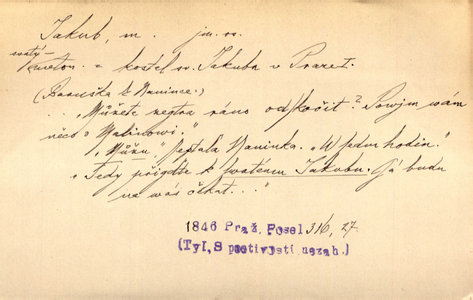 Jakub, m. jm. os.
svatý
meton. = kostel sv. Jakuba v Praze.
(Baruška k Nanince.)
... „Můžete zejtra ráno odskočit? Powjm wám
něco o Malinowi."
„Můžu" ptala Naninka. „W jednu hodin."
„Tedy přigďte k swatému Jakubu. Gá budu
na wás čekat..."
1846 Praž. Posel 316, 27.
(Tyl, S poctivostí nezah.)